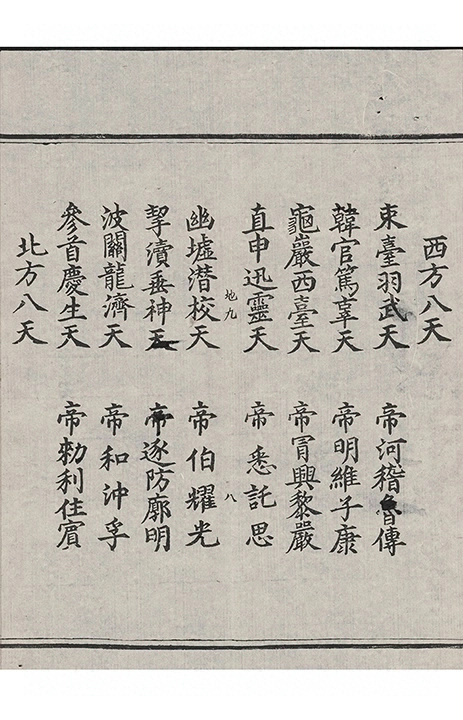 西方八天
束臺羽武天　帝河稽魯傳
韓官篤辜天　帝明維子康
龜巖西臺天　帝冐興黎嚴
直申迅靈天　帝悉託思
地九　八
幽墟潜校天　帝伯耀光
挈瀆垂神天　帝逐防廓明
波關龍濟天　帝和沖孚
參首慶生天　帝勑利住賔
北方八天